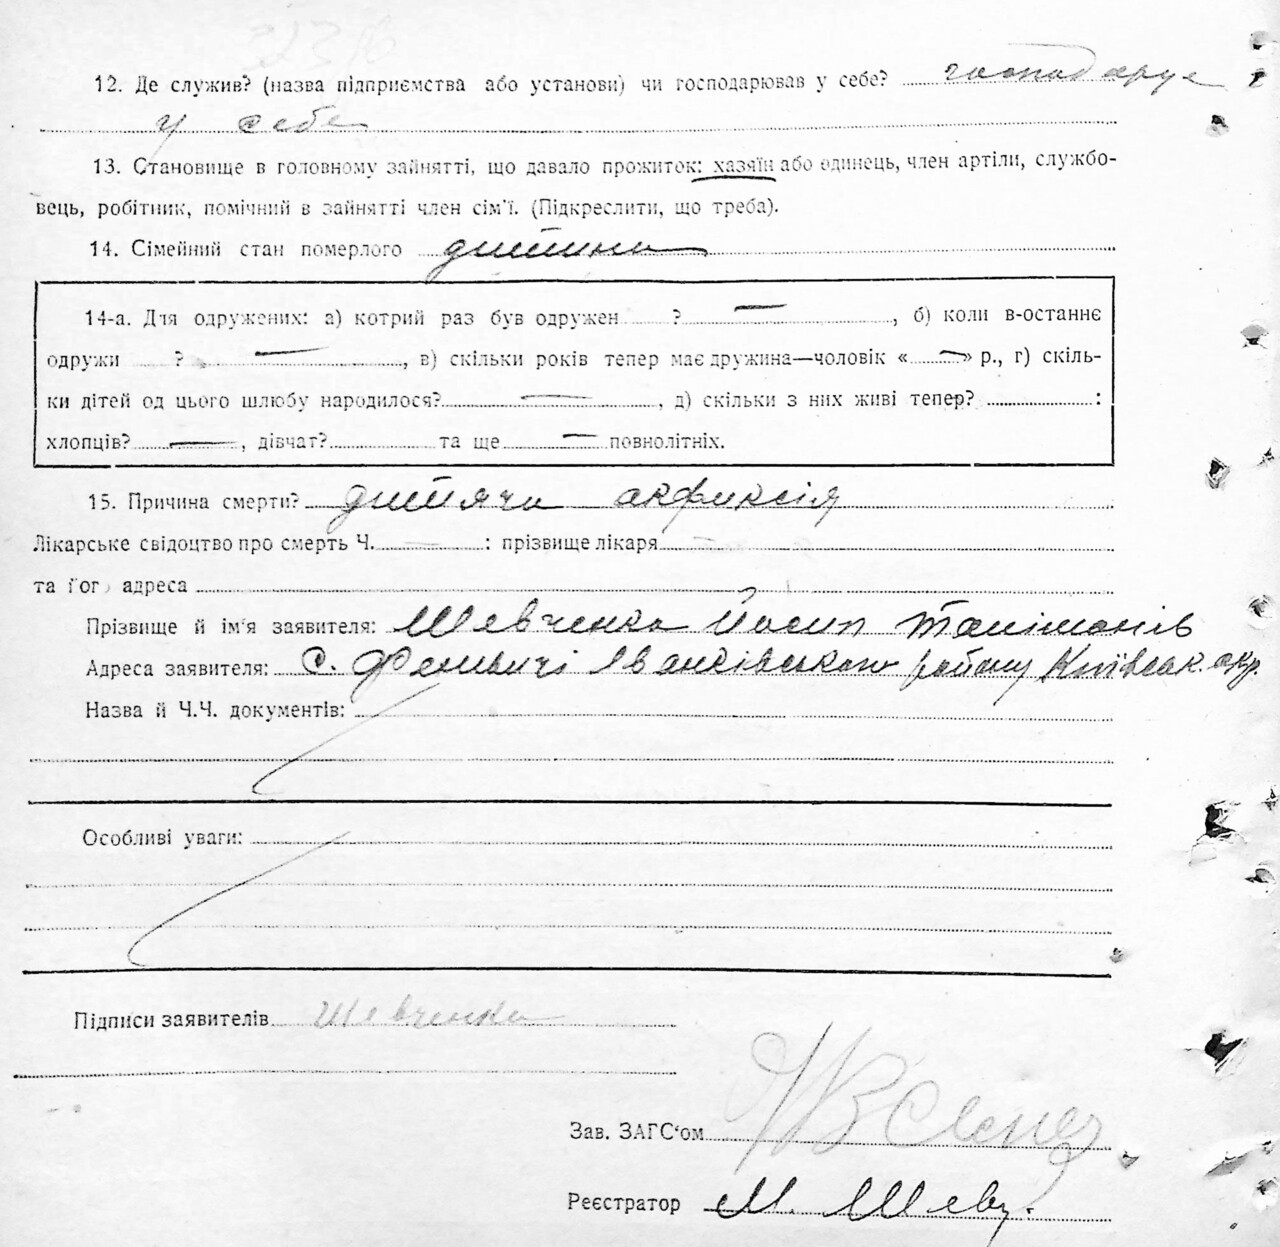 12. Де служив? (назва підприємства або установи) чи господарював у себе? господарує
у себе
13. Становище в головному зайнятті, що давало прожиток: хазяїн або одинець, член артіли, службо-
вець, робітник, помічний в зайнятті член сім'ї. (Підкреслити, що треба).
14. Сімейний стан померлого дитина
14-а. Для одружених: а) котрий раз був одружен ? —, б) коли в-останнє
одружи ? —, в) скільки років тепер має дружина—чоловік « — » р., г) скіль-
ки дітей од цього шлюбу народилося? —, д) скільки з них живі тепер? :
хлопців? —, дівчат? та ще — повнолітніх.
15. Причина смерти? дитяча асфиксія
Лікарське свідоцтво про смерть Ч. — : прізвище лікаря
та його адреса
Прізвище й ім'я заявителя: Шевченко Йосип
Адреса заявителя: с. Іванківського району Київськ. окр.
Назва й Ч.Ч. документів:
Особливі уваги:
Підписи заявителів Шевченко
Зав. ЗАГС'ом
Реєстратор М. Шевч.